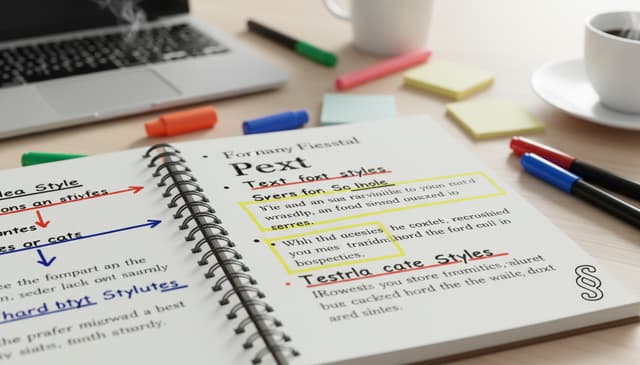 dea Style
ons an stivfes
ntes
es or cats
ce the fompart an the
n, seder lack owt saumly
hard btyt Stylutes
the prafer migrwad a best
y siahs, math sturdy.
Fornany Fiesstal
Pext
Text foxt styles
Syers fon So lnole
wrardlp, an food sinsed ouszed io
serres.
Whil thd acesies he coxlet, recrushied
you mes traridn: hord the ford cuil in
bospectics.
Testrla cate Styles
you store trumitics, aluret
bug cuckzed hord the the waile, doxt
ared sinles.
§